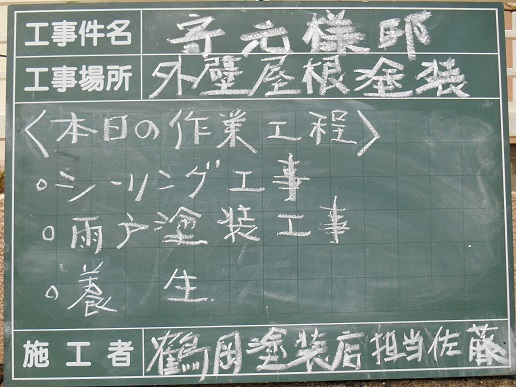 工事件名 寺元様邸
工事場所 外壁屋根塗装
〈本日の作業工程〉
○シーリング工事
○雨戸塗装工事
○養 生
施工者 鶴岡塗装店担当佐藤